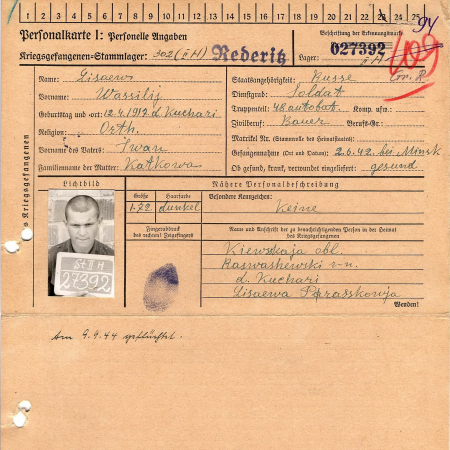 1 2 3 4 5 6 7 8 9 10 11 12 13 14 15 16 17 18 19 20 21 22 23 24 25
94
Personalkarte I: Personelle Angaben
Kriegsgefangenen-Stammlager: 302 (II H) Rederitz
Beschriftung der Erkennungsmarke
027392
Lager: II H
Name: Lisaewi
Vorname: Wassilij
Geburtstag und -ort: 12.4.1912 d. Kuchari
Religion: Orth.
Vorname des Vaters: Iwan
Familienname der Mutter: Katkowa
Staatsangehörigkeit: Russe
Dienstgrad: Soldat
Truppenteil: 48 autobat. Komp. usw.:
Zivilberuf: Bauer Berufs-Gr.:
Matrikel Nr. (Stammrolle des Heimatstaates):
Gefangennahme (Ort und Datum): 2.6.42 bei Minsk
Ob gesund, krank, verwundet eingeliefert: gesund
Kriegsgefangenen
Lichtbild
Nähere Personalbeschreibung
Größe Haarfarbe Besondere Kennzeichen:
1.72 dunkel Keine
St II H
27392
Fingerabdruck
des rechten! Zeigefingers
Name und Anschrift der zu benachrichtigenden Person in der Heimat
des Kriegsgefangenen
Kiewskaja obl.
Raswashewski r-n.
d. Kuchari
Lisaewa Parasskowja
Wenden!
Am 9.9.44 geflüchtet.